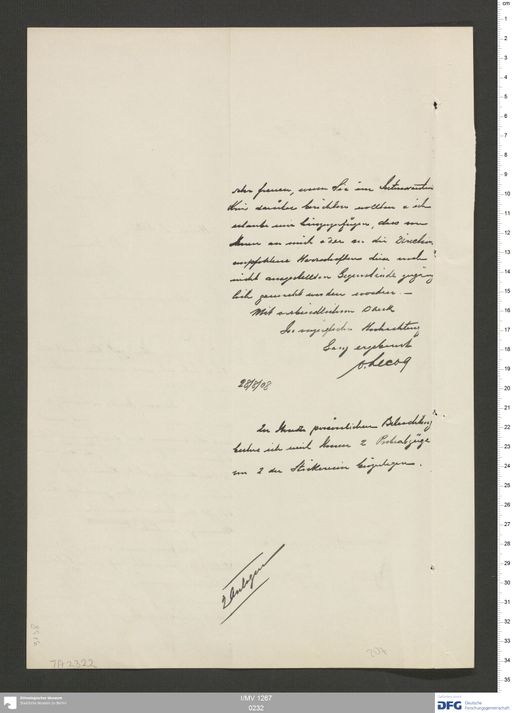 sehr freuen, wenn Sie im
Kreise darüber berichten wollten & ich
erlaube mir hinzuzufügen, dass von
Ihnen an mich oder an die Direction
empfohlene Herrschaften diese noch
nicht ausgestellten Gegenstände zugäng
lich gemacht werden würden. —
Mit verbindlichstem Dank
In vorzüglicher Hochachtung
Ganz ergebenst
v. Lecoq
28/8/08
persönlichen
beehre ich mich Ihnen 2
von 2 der Stickereien beizulegen.
2 Anlagen
TA 2322
207
Ethnologisches Museum
Staatliche Museen zu Berlin
I/MV 1267
0232
DFG Deutsche
Forschungsgemeinschaft
cm
1
2
3
4
5
6
7
8
9
10
11
12
13
14
15
16
17
18
19
20
21
22
23
24
25
26
27
28
29
30
31
32
33
34
35